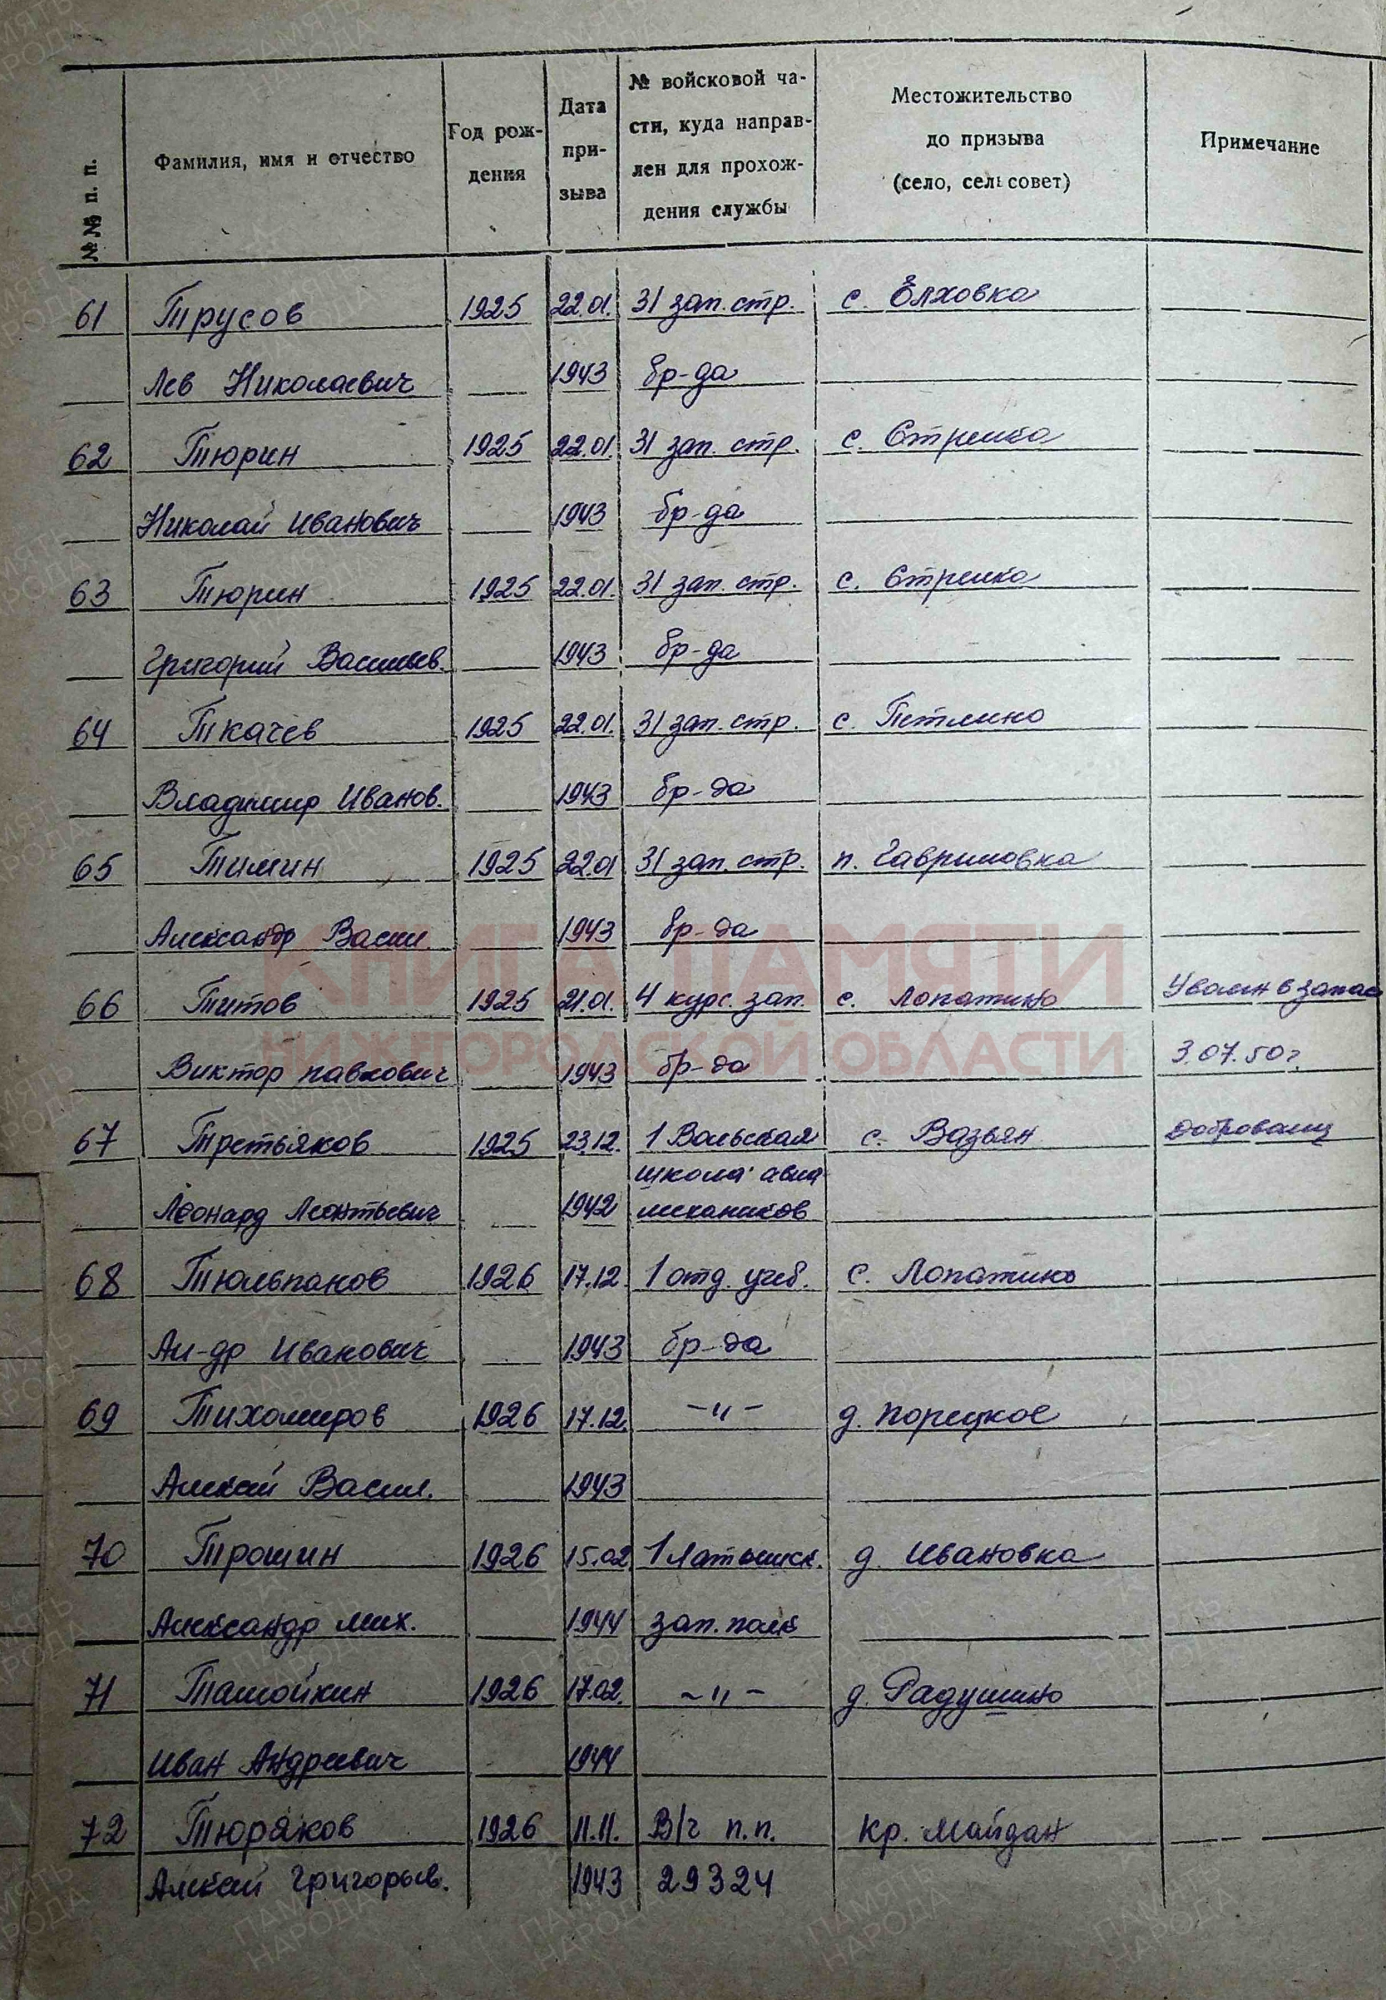 №№ п. п. Фамилия, имя и отчество Год рож- дения Дата при- зыва № войсковой ча- сти, куда направ- лен для прохож- дения службы Местожительство до призыва (село, сельсовет) Примечание
61 Трусов 1925 22.01. 31 зап. стр. с. Ёлховка
Лев Николаевич 1943 бр-да
62 Тюрин 1925 22.01. 31 зап. стр. с. Стрелка
Николай Иванович 1943 бр-да
63 Тюрин 1925 22.01. 31 зап. стр. с. Стрелка
Григорий Васильев. 1943 бр-да
64 Ткачев 1925 22.01. 31 зап. стр. с. Петлино
Владимир Иванов. 1943 бр-да
65 Тимин 1925 22.01 31 зап. стр. п. Гавриловка
Александр Васил. 1943 бр-да
КНИГА ПАМЯТИ
66 Титов 1925 21.01. 4 курс. зап. с. Лопатино Уволен в запас
НИЖЕГОРОДСКОЙ ОБЛАСТИ
Виктор Павлович 1943 бр-да 3.07.50 г.
67 Третьяков 1925 23.12. 1 Вольская с. Вазьян доброволец
школа авиа
Леонард Леонтьевич 1942 механиков
68 Тюльпанов 1926 17.12. 1 отд. учеб. с. Лопатино
Ал-др Иванович 1943 бр-да
69 Тихомиров 1926 17.12. -"- д. Порецкое
Алексей Васил. 1943
70 Трошин 1926 15.02 1 Латышск. д. Ивановка
Александр Мих. 1944 зап. полк
71 Ташойкин 1926 17.02. -"- д. Радушино
Иван Андреевич 1944
72 Тюряков 1926 11.11. В/ч п.п. Кр. Майдан
Алексей Григорьев. 1943 29324